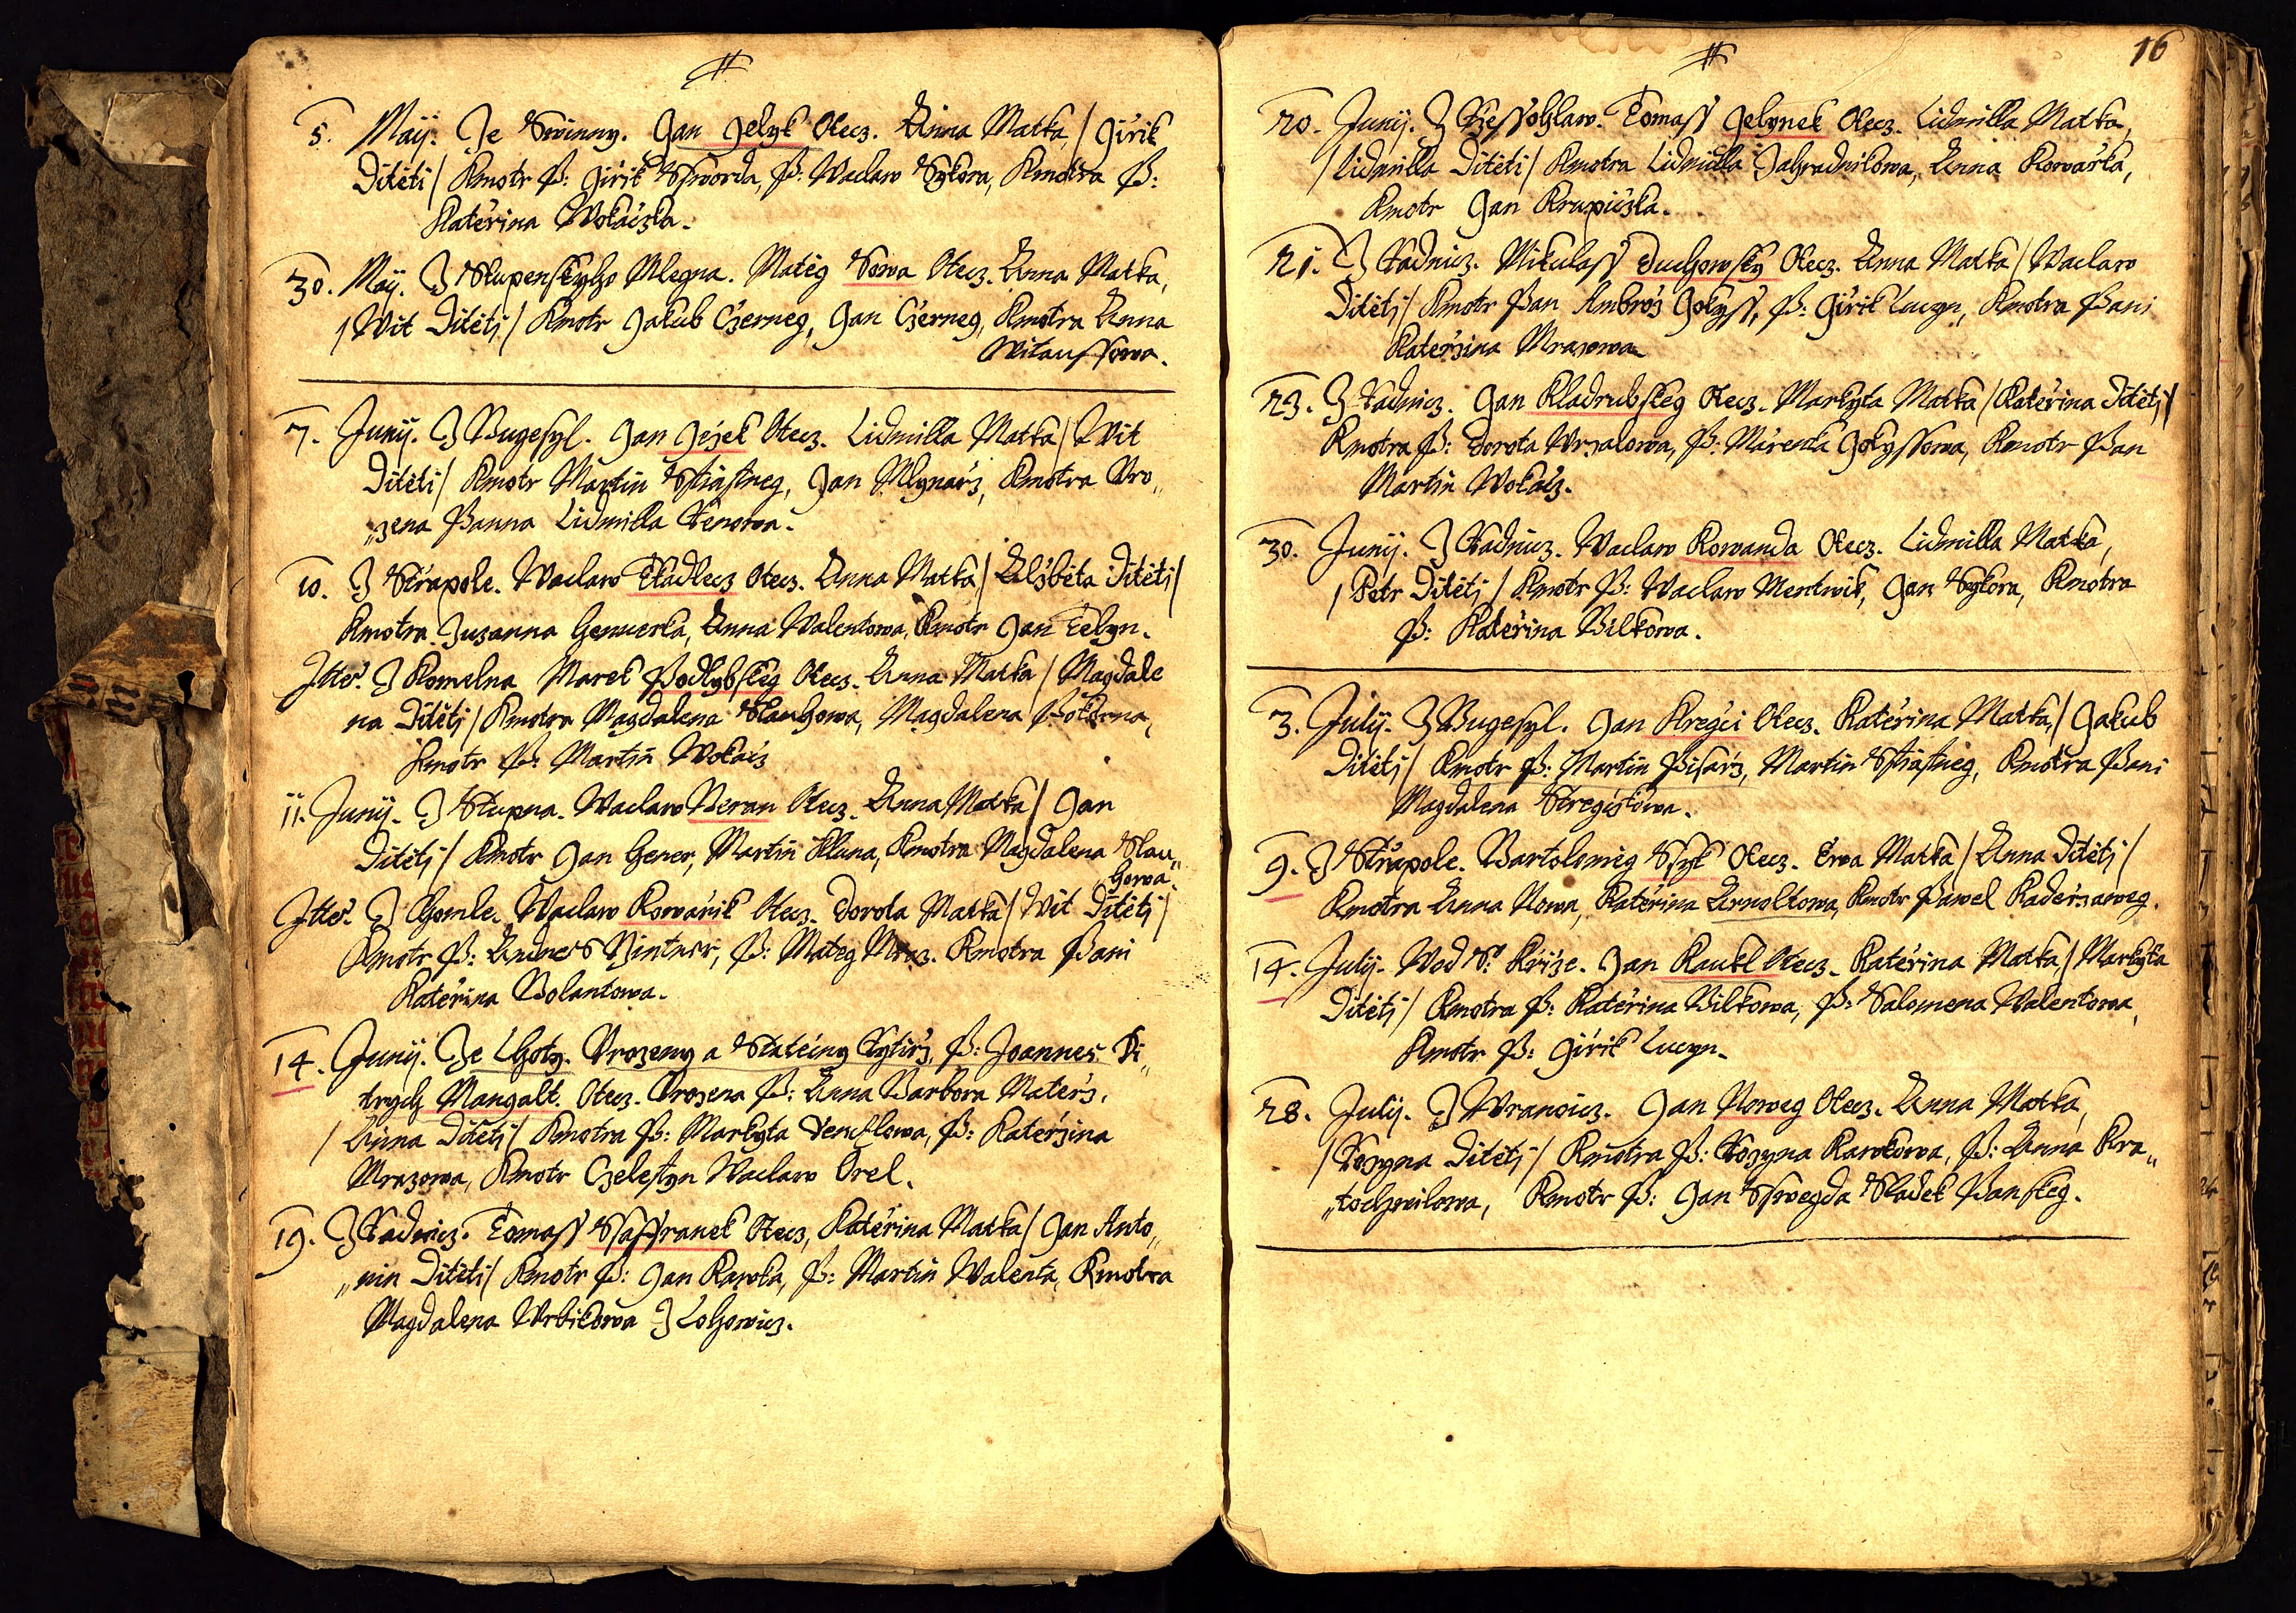 5. Maÿ. Ze Swinny. Jan Jelyk Otecz. Anna Matka / Girik
Ditėti / Kmotr P: Girik Skworda, P: Waclaw Sykora, Kmotra P:
Kateřina Wokáczka.
30. Maÿ. Z Stupenskyho Mlegna. Matěg Sowa Otecz. Anna Matka,
/ Wit Ditětj / Kmotr Jakub Czerneg, Jan Czerneg, Kmotra Anna
Witaussowa.
7. Junij. Z Bugesyl. Jan Ježek Otecz. Lidmilla Matka / Wit
Ditěti / Kmotr Martin Sstiastneg, Jan Mlynarz, Kmotra Uro„
„zena Panna Lidmilla
10. Z Střapole. Waclaw Tkadlecz Otecz. Anna Matka / Alžběta Ditětj /
Kmotra Zuzanna Anna Walentowa, Kmotr Jan
Itter. Z Chomelna Marek Podhybskeg Otecz. Anna Matka / Magdale
na Ditětj / Kmotra Magdalena Slauhowa, Magdalena Pokorna,
Kmotr P: Martin Wokácz
11. Junij. Z Stupna. Waclaw Beran Otecz. Anna Matka / Jan
Ditětj / Kmotr Jan Martin Kluna, Kmotra Magdalena Slau„
„howa.
Itter. Z Chomle. Waclaw Kowařik Otecz. Dorota Matka / Wit Ditětj /
Kmotr P: Andres P: Mateg Mraz. Kmotra Pani
Kateřina Bolantowa.
14. Junij. Ze Lhoty. Urozeny a Statečny Rytirz, P: Joannes Di„
trych Mangalt. Otecz. Urozena P: Anna Barbora Materz,
/ Anna Ditětj / Kmotra P: Markyta P: Katerzina
Mrazowa, Kmotr Czelestyn Waclaw Orel.
19. Z Radnicz. Tomass Ssaffranek Otecz, Kateřina Matka / Jan Anto„
„nin Ditěti / Kmotr P: Jan Kawka, P: Martin Walenta, Kmotra
Magdalena Wrbikowa Z Lohowicz.
16
20. Junij. Z Tomass Jelynek Otecz. Lidmilla Matka,
/ Lidmilla Ditěti / Kmotra Lidmilla Zahradnikowa, Anna Kowařka,
Kmotr Jan Krupiczka.
21. Z Radnicz. Mikulass Duchowsky Otecz. Anna Matka / Waclaw
Ditětj / Kmotr Pan Ambrož Gokyss, P: Girik Lucyn, Kmotra Pani
Katerzina Mrazowa
23. Z Radnicz. Jan Kladrubskeg Otecz. Markyta Matka / Kateřina Ditětj /
Kmotra P: Dorota Wrzalowa, P: Mařenka Gokyssowa, Kmotr Pan
Martin Wokácz.
30. Junij. Z Radnicz. Waclaw Kowanda Otecz. Lidmilla Matka,
/ Petr Ditětj / Kmotr P: Waclaw Mentwik, Jan Sykora, Kmotra
P: Kateřina Bilkowa.
3. Julij. Z Bugesyl. Jan Kregči Otecz. Kateřina Matka, / Jakub
Ditětj / Kmotr P: Martin Pisarz, Martin Sstiastneg, Kmotra Pani
Magdalena
9. Z Střapole. Bartolomig Ssyk Otecz. Ewa Matka / Anna Ditětj /
Kmotra Anna Nowa, Kateřina Arnoltowa, Kmotr Pawel Kaderzaweg.
14. Julij. Wod S: Kříže. Jan Raukl Otecz. Kateřina Matka / Markyta
Ditětj / Kmotra P: Kateřina Bilkowa, P: Salomena Walentowa,
Kmotr P: Girik Lucyn.
28. Julij. Z Wranowicz. Jan Noweg Otecz. Anna Matka,
/ Rozyna Ditětj / Kmotra P: Rozyna Kawkowa, P: Anna Kra„
„tochwilowa, Kmotr P: Jan Sswegda Sladek Panskeg.